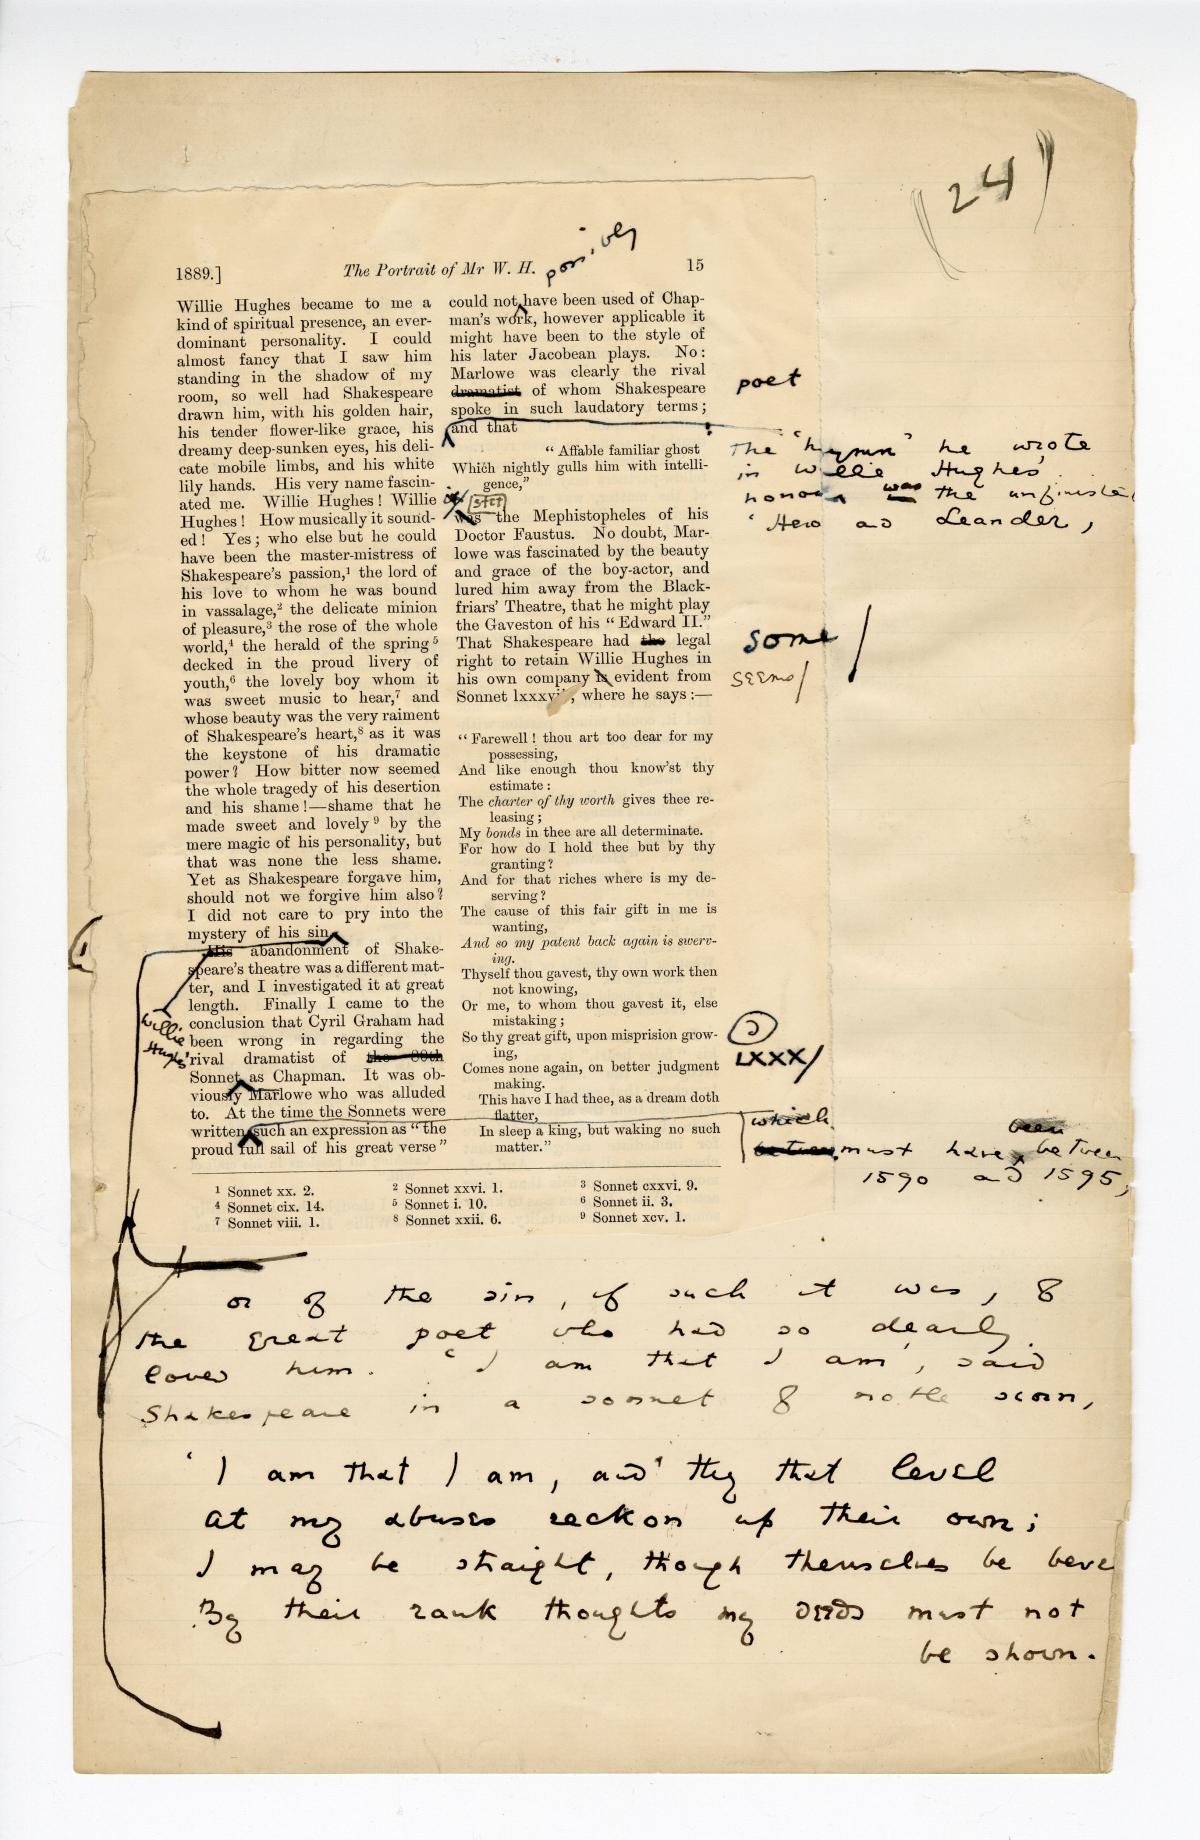 (24)
possibly
1889.] The Portrait of Mr W. H. 15
Willie Hughes became to me a
kind of spiritual presence, an ever-
dominant personality. I could
almost fancy that I saw him
standing in the shadow of my
room, so well had Shakespeare
drawn him, with his golden hair,
his tender flower-like grace, his
dreamy deep-sunken eyes, his deli-
cate mobile limbs, and his white
lily hands. His very name fascin-
ated me. Willie Hughes! Willie
Hughes! How musically it sound-
ed! Yes; who else but he could
have been the master-mistress of
Shakespeare's passion,¹ the lord of
his love to whom he was bound
in vassalage,² the delicate minion
of pleasure,³ the rose of the whole
world,⁴ the herald of the spring⁵
decked in the proud livery of
youth,⁶ the lovely boy whom it
was sweet music to hear,⁷ and
whose beauty was the very raiment
of Shakespeare's heart,⁸ as it was
the keystone of his dramatic
power? How bitter now seemed
the whole tragedy of his desertion
and his shame!—shame that he
made sweet and lovely⁹ by the
mere magic of his personality, but
that was none the less shame.
Yet as Shakespeare forgave him,
should not we forgive him also?
I did not care to pry into the
mystery of his sin
His abandonment of Shake-
speare's theatre was a different mat-
ter, and I investigated it at great
length. Finally I came to the
conclusion that Cyril Graham had
been wrong in regarding the
rival dramatist of the 80th
Sonnet as Chapman. It was ob-
viously Marlowe who was alluded
to. At the time the Sonnets were
written, such an expression as "the
proud full sail of his great verse"
Willie
Hughes'
could not have been used of Chap-
man's work, however applicable it
might have been to the style of
his later Jacobean plays. No:
Marlowe was clearly the rival
dramatist of whom Shakespeare
spoke in such laudatory terms;
and that
"Affable familiar ghost
Which nightly gulls him with intelli-
gence,"
stet
was the Mephistopheles of his
Doctor Faustus. No doubt, Mar-
lowe was fascinated by the beauty
and grace of the boy-actor, and
lured him away from the Black-
friars' Theatre, that he might play
the Gaveston of his "Edward II."
That Shakespeare had the legal
right to retain Willie Hughes in
his own company is evident from
Sonnet lxxxvii., where he says:—
"Farewell! thou art too dear for my
possessing,
And like enough thou know'st thy
estimate:
The charter of thy worth gives thee re-
leasing;
My bonds in thee are all determinate.
For how do I hold thee but by thy
granting?
And for that riches where is my de-
serving?
The cause of this fair gift in me is
wanting,
And so my patent back again is swerv-
ing.
Thyself thou gavest, thy own work then
not knowing,
Or me, to whom thou gavest it, else
mistaking;
So thy great gift, upon misprision grow-
ing,
Comes none again, on better judgment
making.
This have I had thee, as a dream doth
flatter,
In sleep a king, but waking no such
matter."
poet
The "hymn" he wrote
in Willie Hughes'
honour was the unfinished
'Hero and Leander,
some/
seems/
LXXX/
which
between must have been between
1590 and 1595,
¹ Sonnet xx. 2. ² Sonnet xxvi. 1. ³ Sonnet cxxvi. 9.
⁴ Sonnet cix. 14. ⁵ Sonnet i. 10. ⁶ Sonnet ii. 3.
⁷ Sonnet viii. 1. ⁸ Sonnet xxii. 6. ⁹ Sonnet xcv. 1.
or of the sin, if such it was, of
the great poet who had so dearly
loved him. 'I am that I am', said
Shakespeare in a sonnet of noble scorn,
'I am that I am, and they that level
At my abuses reckon up their own;
I may be straight, though themselves be beve
By their rank thoughts my deeds must not
be shown.